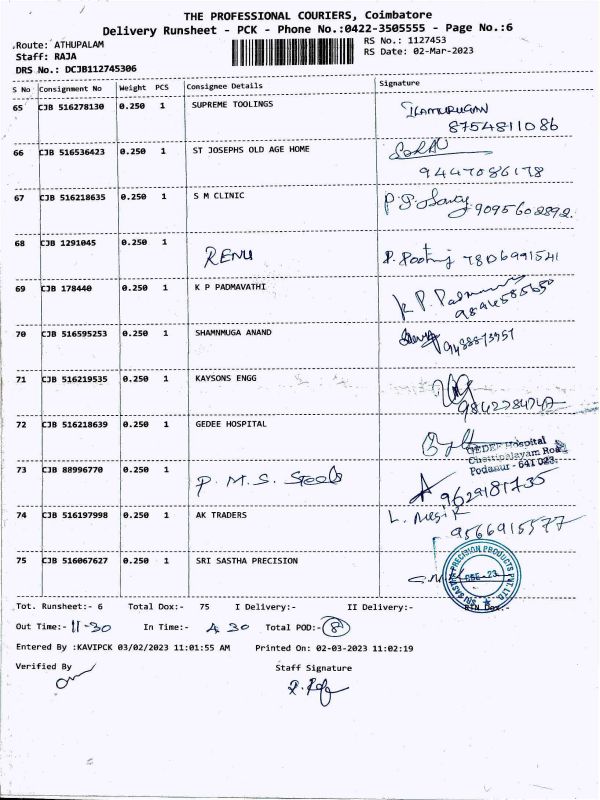 THE PROFESSIONAL COURIERS, Coimbatore
Delivery Runsheet - PCK - Phone No.:0422-3505555 - Page No.:6
Route: ATHUPALAM
RS No.: 1127453
Staff: RAJA
RS Date: 02-Mar-2023
DRS No.: DCJB112745306
S No Consignment No Weight PCS Consignee Details Signature
65 CJB 516278130 0.250 1 SUPREME TOOLINGS
8754811086
66 CJB 516536423 0.250 1 ST JOSEPHS OLD AGE HOME
9447086178
67 CJB 516218635 0.250 1 S M CLINIC 9095602892
68 CJB 1291045 0.250 1 RENU 7806991541
69 CJB 178440 0.250 1 K P PADMAVATHI K P. Padma
70 CJB 516595253 0.250 1 SHAMNMUGA ANAND
71 CJB 516219535 0.250 1 KAYSONS ENGG
72 CJB 516218639 0.250 1 GEDEE HOSPITAL
GEDEE Hospital
Chettipalayam Road
Podanur - 641 023.
73 CJB 88996770 0.250 1 P. M. S. Steels
9629181735
74 CJB 516197998 0.250 1 AK TRADERS
9566915577
75 CJB 516067627 0.250 1 SRI SASTHA PRECISION
SRI SASTHA PRECISION PRODUCTS PVT. LTD.
Tot. Runsheet:- 6 Total Dox:- 75 I Delivery:- II Delivery:- RTN Dox:-
Out Time:- 11-30 In Time:- 4 30 Total POD:- 8
Entered By :KAVIPCK 03/02/2023 11:01:55 AM Printed On: 02-03-2023 11:02:19
Verified By Staff Signature